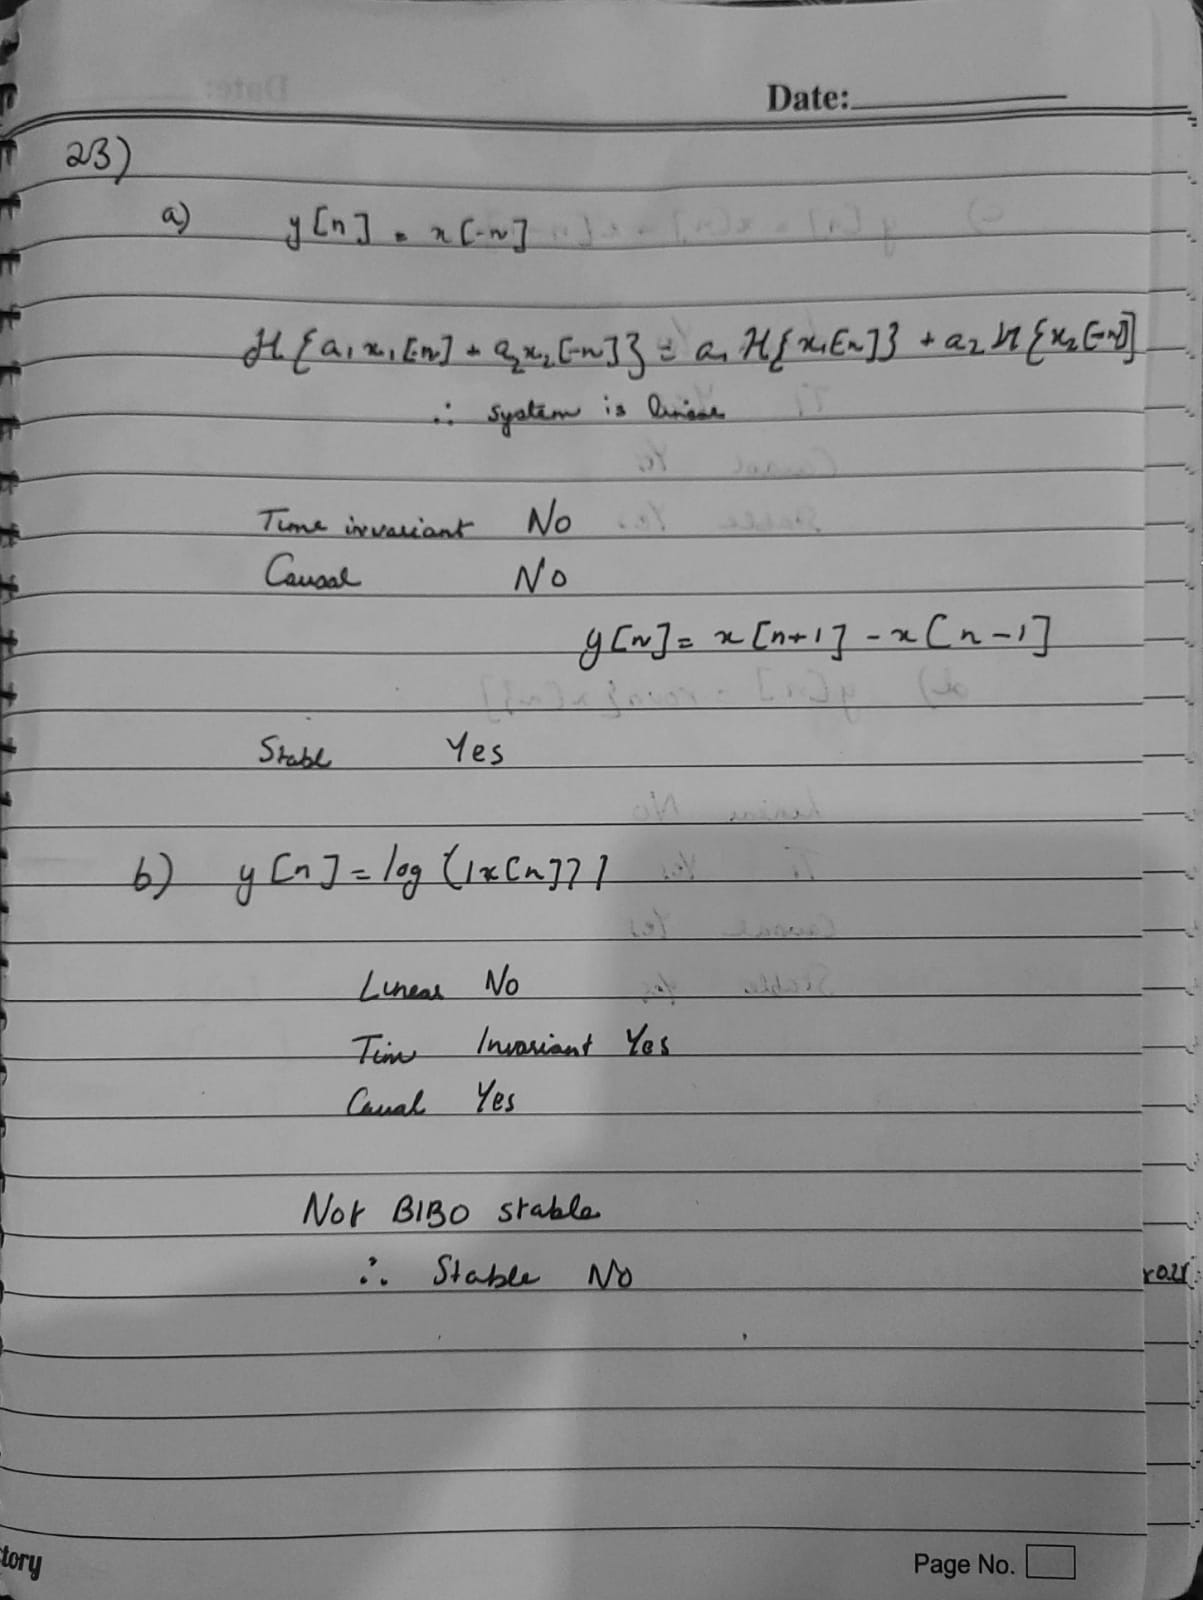 Date:
23)
a) y[n] = x[-n]
H{a₁x₁[-n] + a₂x₂[-n]} = a₁ H{x₁[-n]} + a₂ H{x₂[-n]}
∴ system is linear
Time invariant No
Causal No
y[n] = x[n+1] - x[n-1]
Stabl Yes
b) y[n] = log(|x[n]|)
Linear No
Tim Invariant Yes
Caual Yes
Not BIBO stable
∴ Stable No
tory
Page No.